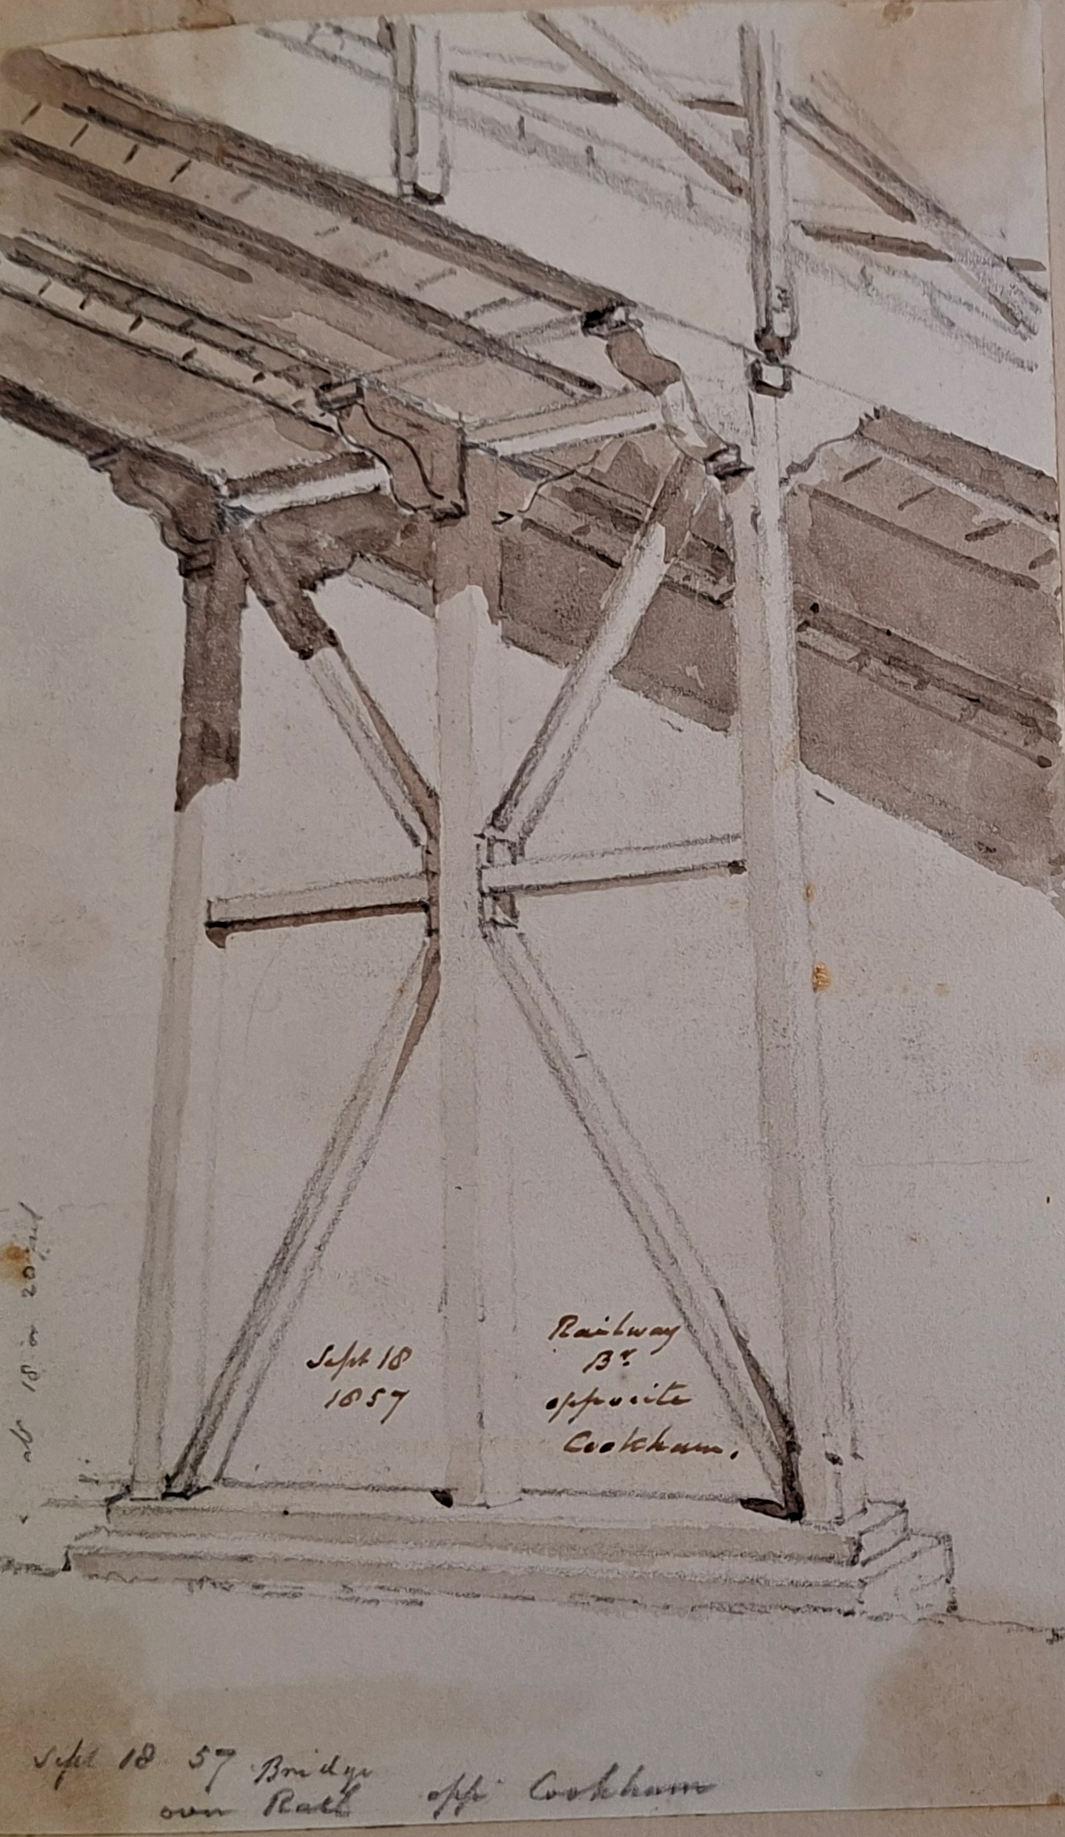 Sept 18
1857
Railway
Br.
opposite
Cookham.
at 18 or 20 feet
Sept 18 57 Bridge
over Rail opp Cookham